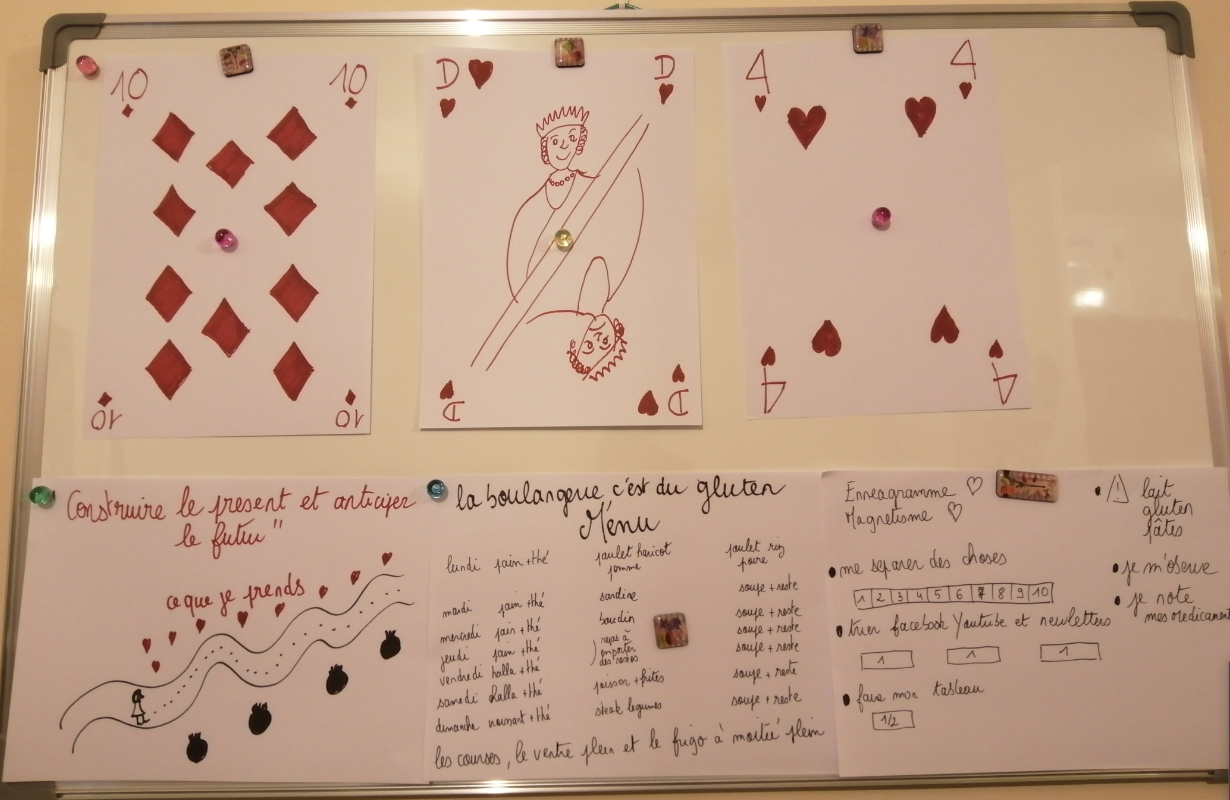 10 10
D D
4 4
10 10
D D
4 4
Construire le present et anticiper
le futur"
ce que je prends
la boulangerie c'est du gluten
Menu
lundi pain + thé poulet haricot pomme poulet riz poire
mardi pain + thé sardine soupe + reste
mercredi pain + thé boudin soupe + reste
jeudi pain + thé repas à emporter des restes soupe + reste
vendredi halla + thé soupe + reste
samedi halla + thé poisson + frites soupe + reste
dimanche + thé steak legumes soupe + reste
les courses, le ventre plein et le frigo à moitié plein
Enneagramme
Magnetisme
me separer des choses
1 2 3 4 5 6 7 8 9 10
trier facebook Youtube et newletters
1 1 1
faire mon tableau
1/2
! lait
gluten
pâtes
je m'observe
je note
mes medicament